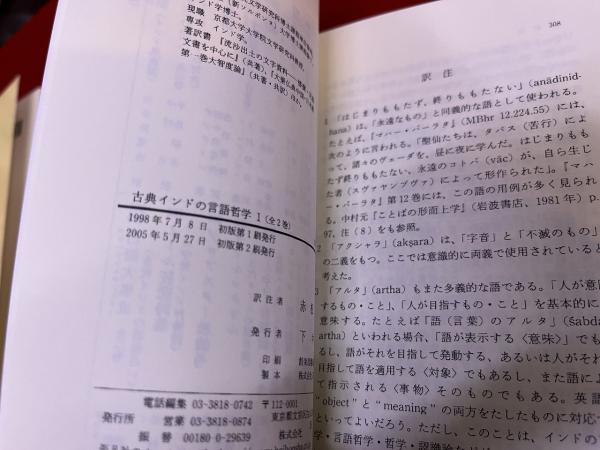 文学研究科博士
(新ソルボンヌ)大学
ンド学博士。
現職 京都大学大学院文学研究科教授。
専攻 インド学。
著訳書 『流沙出土の文字資料
文書を中心に』(共著)、『大
第一巻大智度論』(共著・共訳)ほか。
古典インドの言語哲学 1(全2巻)
1998年7月8日 初版第1刷発行
2005年5月27日 初版第2刷発行
訳注者 赤
発行者 下
印刷
製本 株式
電話編集 03-3818-0742 〒112-0001
発行所 営業 03-3818-0874 東京都文京
振替 00180 0-29639 株式会社
308
訳注
1 「はじまりももたず、終りももたない」(anādinid-
hana)は、「永遠なもの」と同義的な語として使われる。
たとえば、『マハー・バーラタ』(MBhr 12.224.55)には、
次のように言われる。「聖仙たちは、タパス(苦行)によ
って、諸々のヴェーダを、昼に夜に学んだ。はじまりもも
たず終りももたない、永遠のコトバ(vāc)が、自ら生じ
た者(スヴァヤンブヴァ)によって形作られた」。『マハ
ー・バーラタ』第12巻には、この語の用例が多く見られ
る。中村元『ことばの形而上学』(岩波書店、1981年)p.
97、注(8)をも参照。
2 「アクシャラ」(akṣara)は、「字音」と「不滅のもの」
の二義をもつ。ここでは意識的に両義で使用されていると
考えた。
3 「アルタ」(artha)もまた多義的な語である。「人が意
するもの・こと」、「人が目指すもの・こと」を基本的に
意味する。たとえば「語(言葉)のアルタ」(śabda
artha)といわれる場合、「語が表示する〈意味〉」でも
るし、語がそれを目指して発動する、あるいは人がそれ
目指して語を適用する〈対象〉でもあるし、また語に
て指示される〈事物〉そのものでもある。英語
"object" と "meaning" の両方をたしたものに対応
といってよいだろう。ただし、このことは、インドの
学・言語哲学・哲学・認識論な